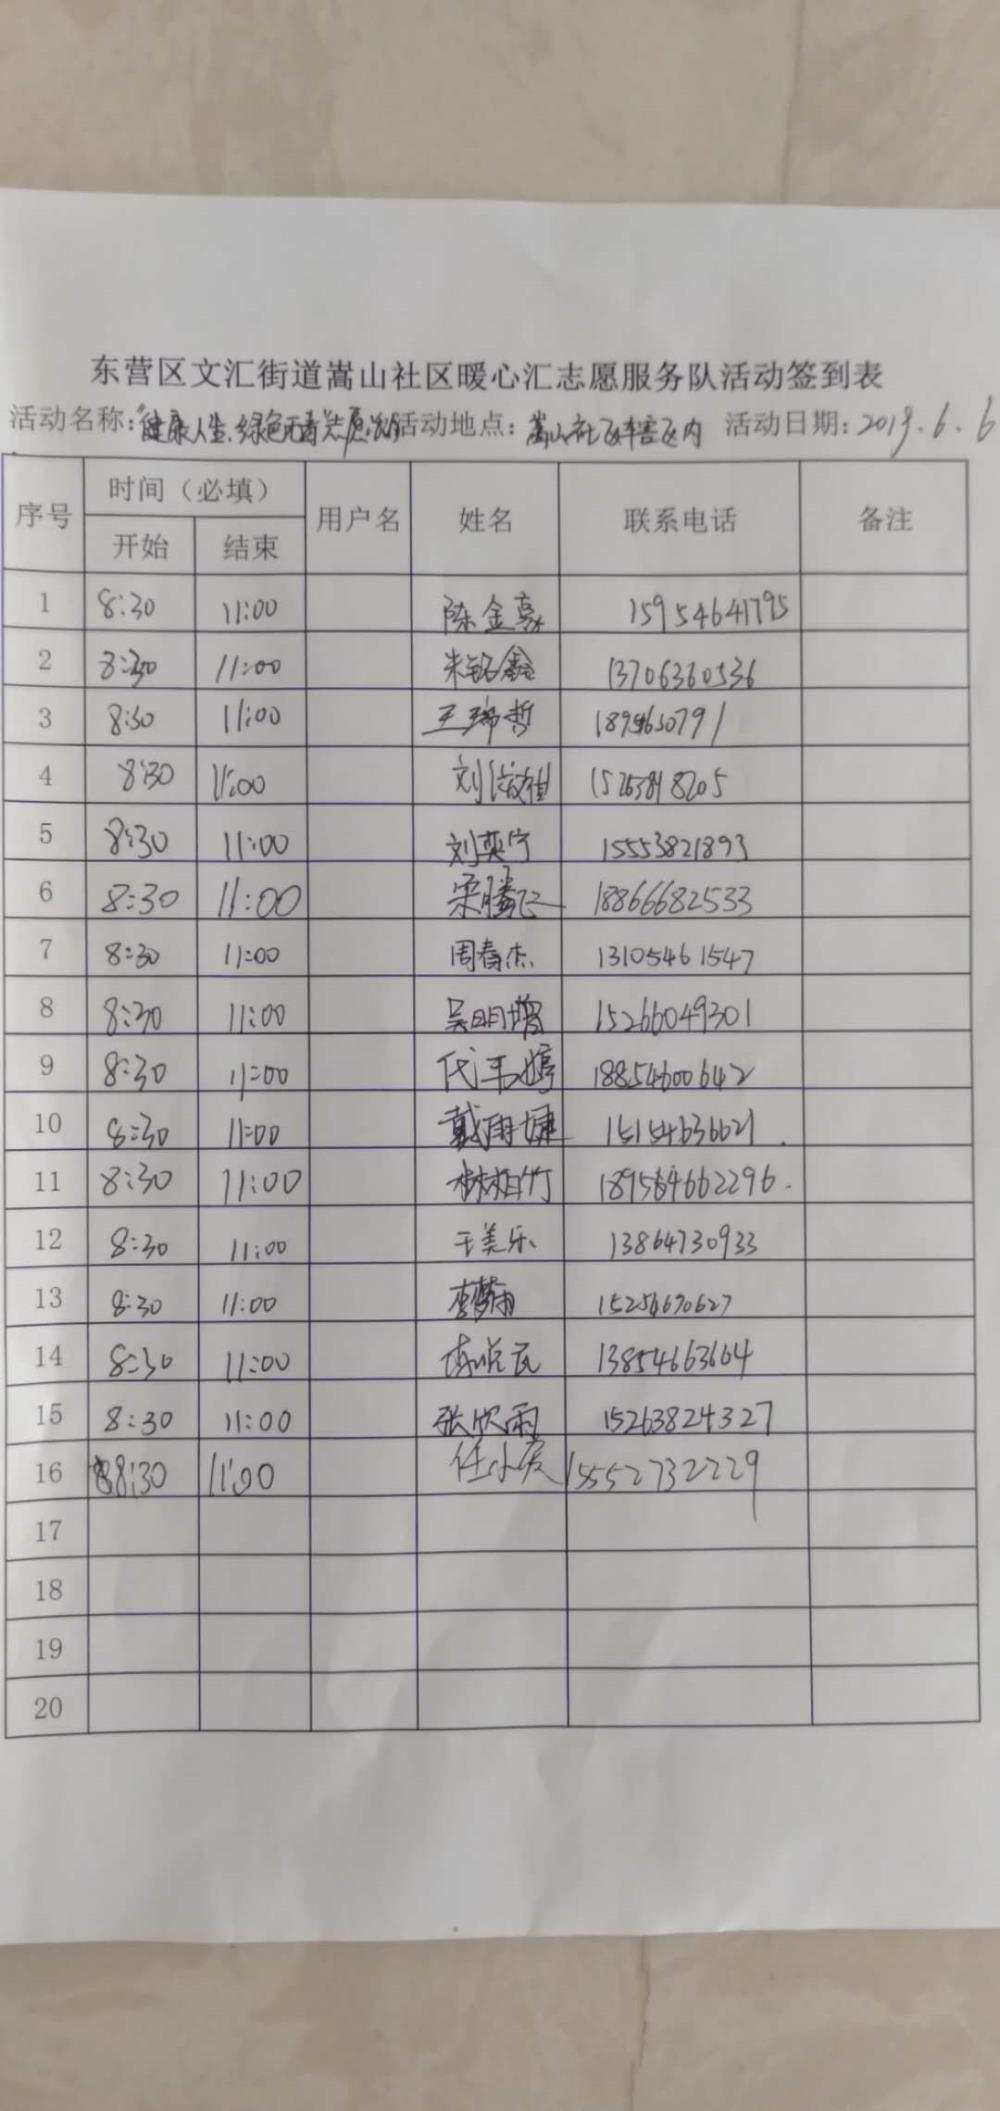 东营区文汇街道嵩山社区暖心汇志愿服务队活动签到表
活动名称：“健康人生、绿色无毒志愿 活动地点：嵩山社区辖区内 活动日期：2019.6.6
序号 时间（必填） 用户名 姓名 联系电话 备注
开始 结束
1 8:30 11:00 陈金豪 15954641795
2 8:30 11:00 朱铭鑫 13706360536
3 8:30 11:00 王瑞哲
4 8:30 11:00 刘
5 8:30 11:00 刘奕宁 15553821893
6 8:30 11:00 宋腾 18866682533
7 8:30 11:00 周春杰 13105461547
8 8:30 11:00 吴明增 15266049301
9 8:30 11:00 代玉婷 18854600642
10 8:30 11:00 戴雨婕 15154636621
11 8:30 11:00
12 8:30 11:00 王美乐 13864730933
13 8:30 11:00 李梦雨
14 8:30 11:00 13854663664
15 8:30 11:00 张欣雨 15263824327
16 8:30 11:00 任小 15552732229
17
18
19
20